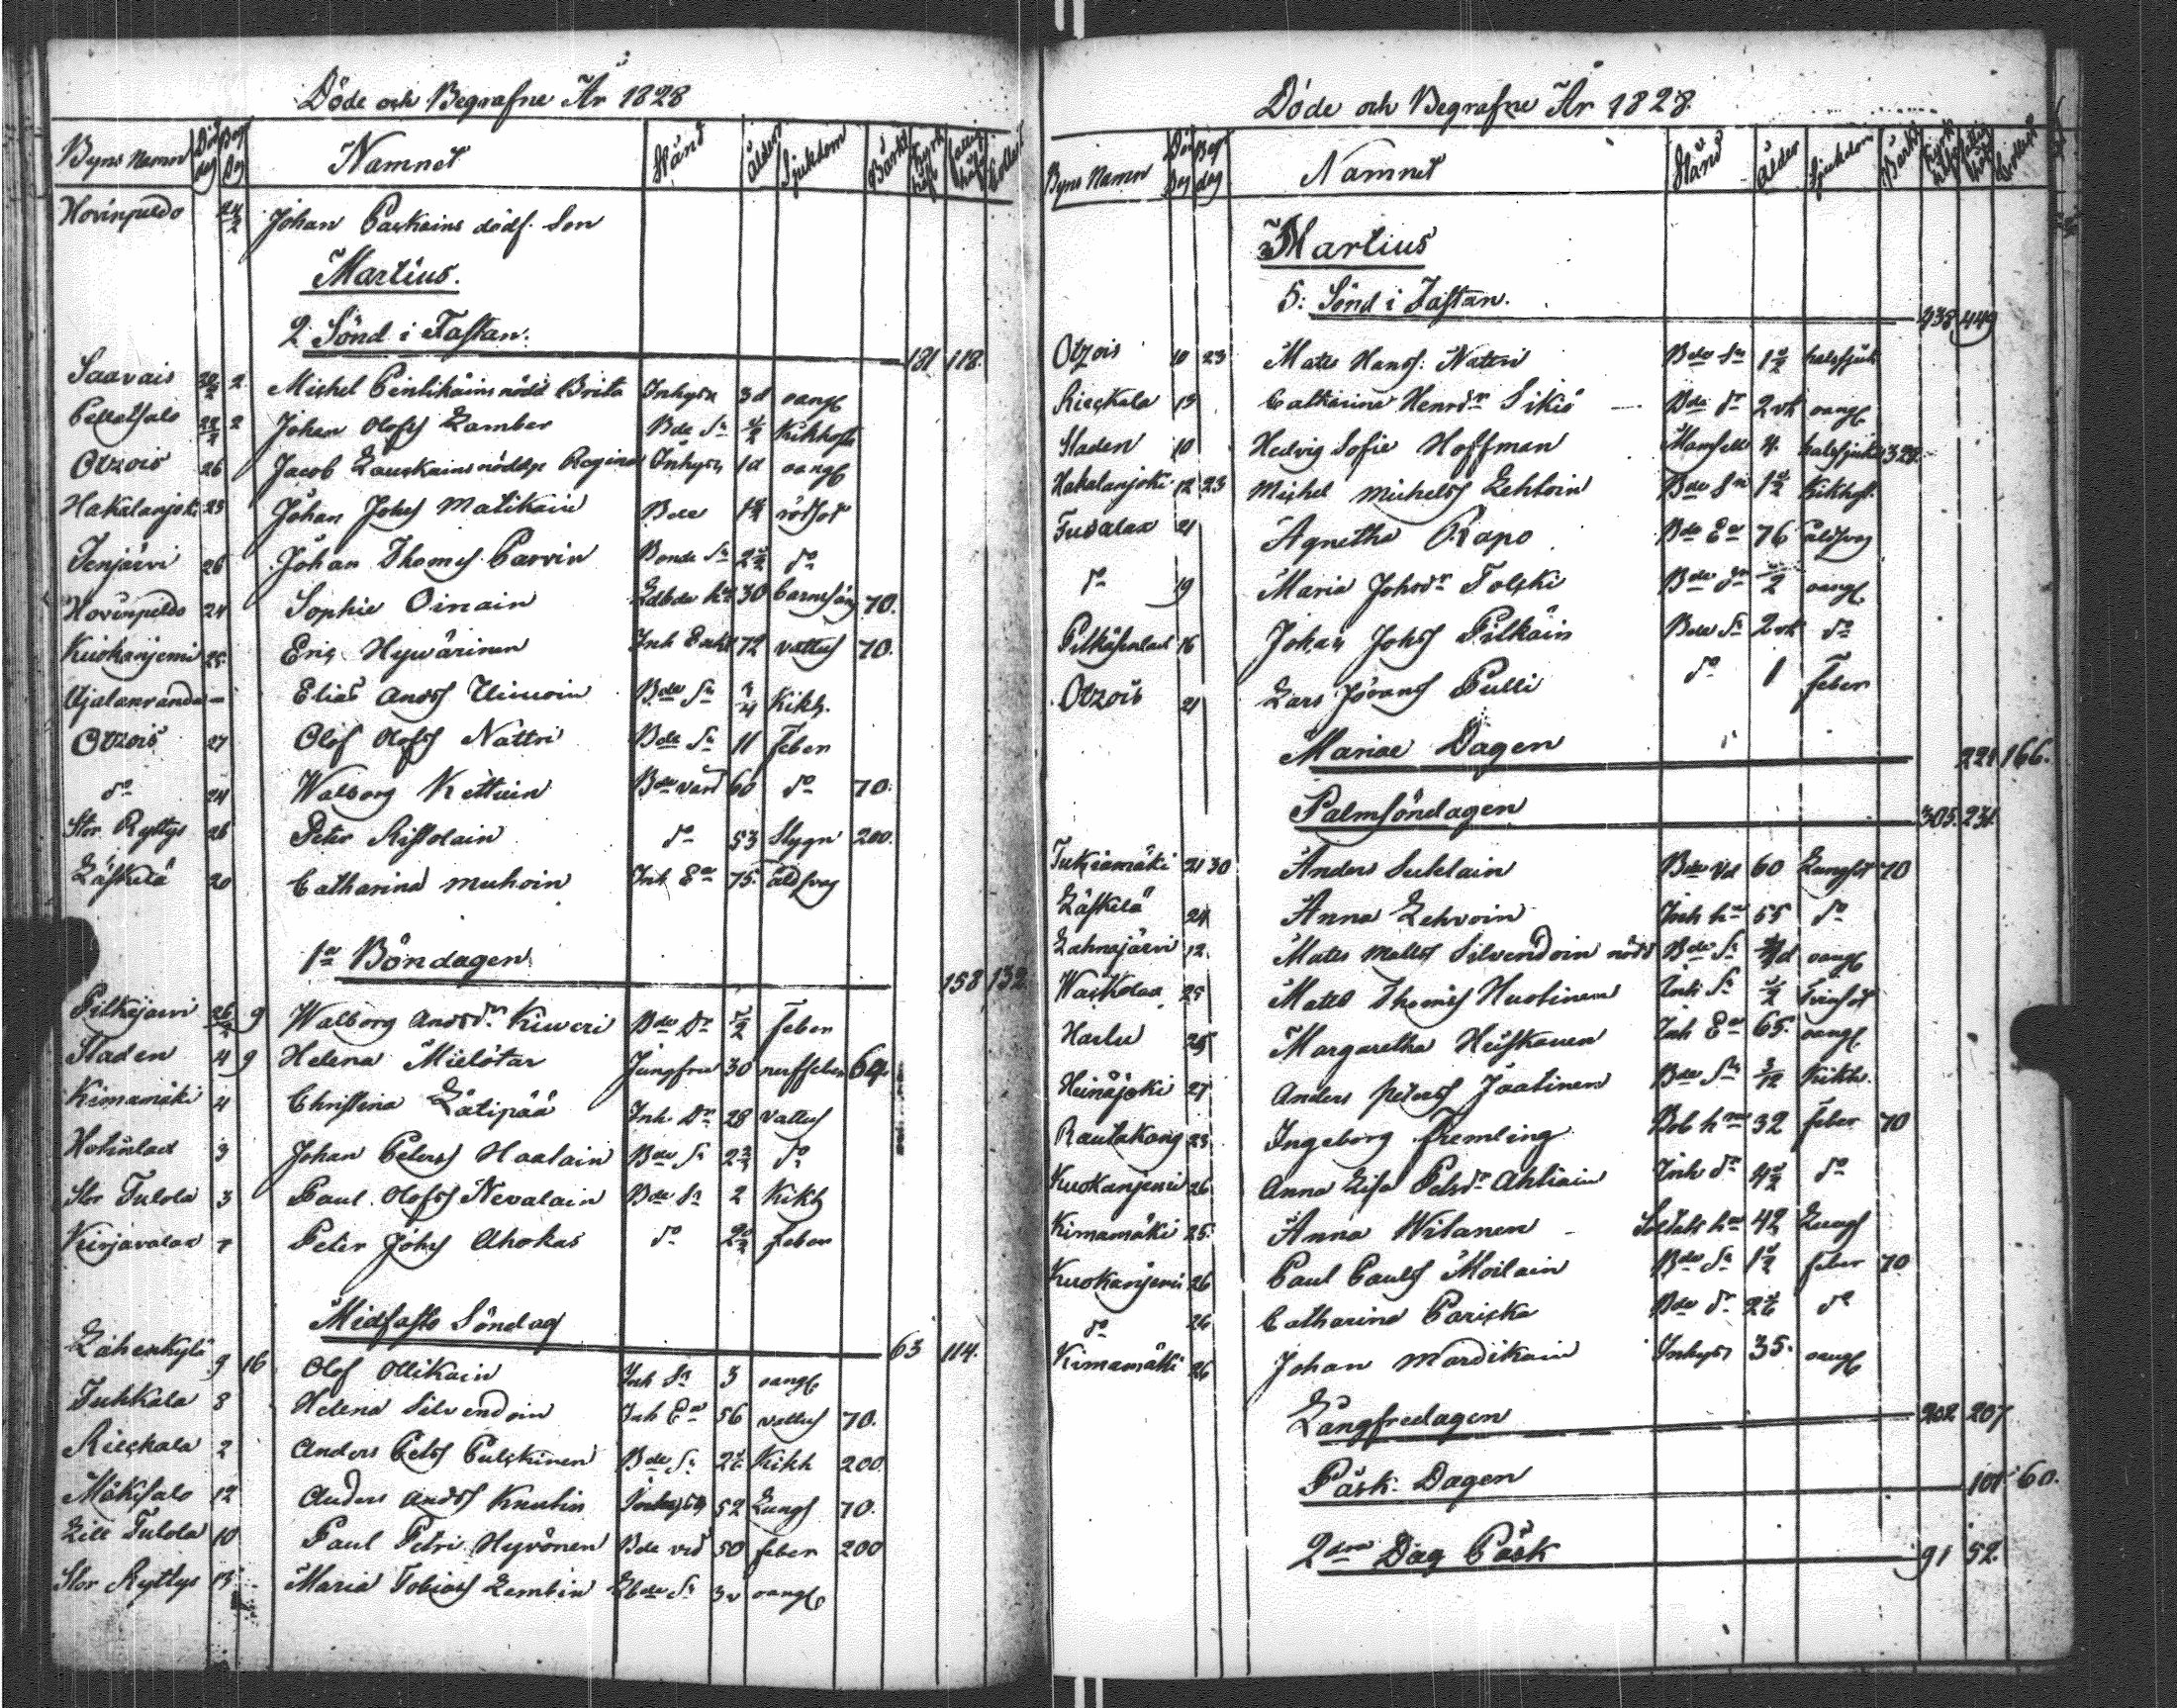 Döde och Begrafne År 1828
Byns Namn Död dag Begr dag Namnet Stånd Ålder Sjukdom
Hovinpeldo 24/2 Johan Parkains dödf. Son
Martius.
2. Sönd i Fastan. 181 118.
Saavais 2 Michel Pentikäins nödd Brita Inhyse 3d oangf
Pellotsalo 2 Johan Olofss Lamber Bde Sn 1/2 Kikhosta
Otzois 26 Jacob Lauskains nöddp Regina Inhyse 1d oangf
Hakalanjoki 23 Johan Johss Matikain Bde rödsot
Jenjärvi 26 Johan Thomss Parvin Bonde Sn do
Hovinpeldo 24 Sophie Oinain 30 Barnsäng 70.
Kuokanjemi 25 Eric Hyvärinen Inh Enkl 72 vattus 70.
Ujalanranda Elias Andss Bde Sn 3/4 Kikh.
Otzois 27 Olof Olofss Nattri Bde Sn 11 Feber
do 24 Walborg Kettuin Bde värd 60 do 70.
Stor Ryttys 26 Peter Rissolain do 53 Stygn 200.
Läskelä 20 Catharina Muhoin Inh Ea 75. åldsvag
1a Böndagen 158 132
Pitkäjärvi 26/2 9 Walborg Andsdr Kiuveri Bde Dr 5/2 Feber
Staden 4 9 Helena Mielötar Jungfru 30 nerffeber
Kimamäki 4 Christina Lätipää Inh. Dr 28 vattus
Hotinlax 3 Johan Peterss Haalain Bde Sn do
Stor Tulola 3 Paul Olofss Nevalain Bde Sn 2 Kikh
Kirjavalax 7 Peter Johss Ahokas do Feber
Midfasto Söndag 63 114.
Lahenkylä 9 16 Olof Ollikain Inh Sn 3 oangf
Tuhkala 8 Helena Silvendoin Inh Ea 56 vattus 70.
Riekkala 2 Anders Petss Pulkkinen Bde Sn Kikh 200.
Mäkisalo 12 Anders Andss Knutin 52 Lungs 70.
Lill Tulola 10 Paul Petri Hyvönen Bde vrd 50 feber 200
Stor Ryttys 13 Maria Tobiass Lembin 3v oangf
Döde och Begrafne År 1828.
Byns Namn Död dag Begr dag Namnet Stånd Ålder Sjukdom
Martius
5: Sönd i Fastan. 438 449
Otzois 10 23 Mats Hanss. Nattri Bde Sn 1 1/2 halssjuk
Riekkala 13 Catharina Henrdr Sikiö Bde dr 2vk oangf
Staden 10 Hedvig Sofie Hoffman Mamsell 4. halssjuka
Hakalanjoki 12 23 Michel Michelss Lehtoin Bde Sn 1 1/2 Kikhost.
Tuvalax 21 Agnetha Rapo Bde Ea 76 åldsvag
do 19 Maria Johsdr Tolski Bde dr oangf
Pitkäsenlax 16 Johan Johss Pitkäin Bde Sn 2vk do
Otzois 21 Lars Jörans Pulli do 1 Feber
Mariae Dagen 221 166.
Palmsöndagen 305. 231.
Tukiamäki 21 30 Anders Suklain Bde Vd 60 Lungsot 70
Läskelä 24 Anna Lehvoin Inh ha 55 do
Lahnajärvi 12. Mats Matss Silvendoin nödd Bde Sn oangf
Waskolax 25 Mats Thomss Huotinen Inh Sn 1/2 Tvinsot
Harlu 25 Margaretha Heiskanen Inh Ea 65. oangf
Heinäjoki 27 Anders Peterss Jaatinen Bde Sn 3/12 Kikh.
Rautakang 23 Ingeborg Fremling Bob hru 32 feber 70
Kuokanjemi 26 Anna Lisa Petsdr Ahtiain Inh dr 4 1/2 do
Kimamäki 25. Anna Witanen Soldats ha 42 Lungs
Kuokanjemi 26 Paul Paulss Moilain Bde Sn 1 1/2 feber 70
do 26 Catharina Pariska Bde dr do
Kimamäki 26 Johan Mardikain Inhyse 35. oangf
Långfredagen 202 207
Påsk. Dagen 101 60.
2dra Dag Påsk 91 52.